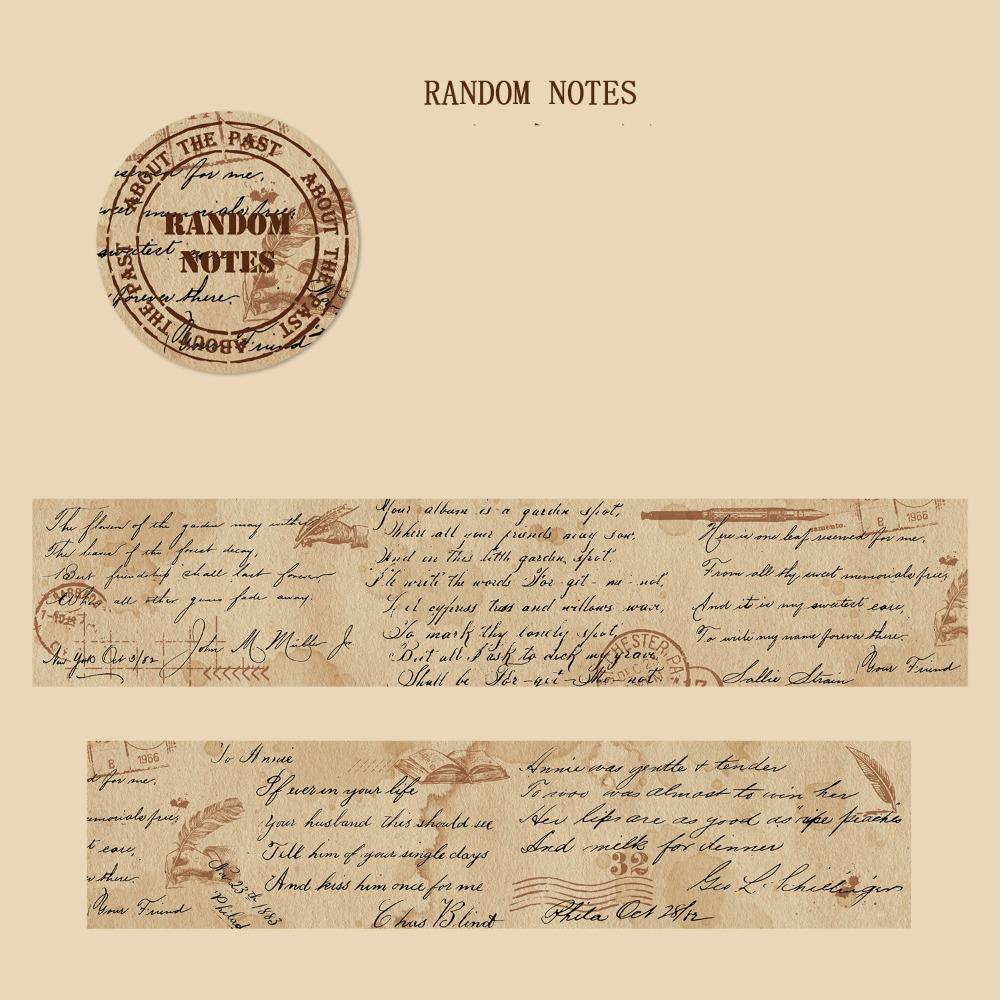 RANDOM NOTES
ABOUT THE PAST
ABOUT THE PAST
ABOUT THE PAST
for me,
sweet memorials free,
RANDOM
sweetest
NOTES
forever there.
Your Friend
The flowers of the garden may wither
The leaves of the forest decay,
But friendship shall last forever
When all other gems fade away.
John M Miller Jr
New York Oct 3/82
Your album is a garden spot,
Where all your friends may sow,
And in this little garden spot
I'll write the words For-get-me-not,
Let cypress trees and willows wave,
To mark thy lonely spot,
But all I ask to deck my grave
Shall be For-get-Me-not
CHESTER, PA
B 1966
Here is one leaf reserved for me,
From all thy sweet memorials free;
And it is my sweetest care,
To write my name forever there.
Your Friend
Sallie Strain
B 1966
for me,
memorials free;
care,
there.
Your Friend
Nov 23th 1883
Philad
To Annie
If ever in your life
Your husband this should see
Tell him of your single days
And kiss him once for me
Chas Blind
Annie was gentle & tender
To woo was almost to win her
Her lips are as good as "ripe peaches
And milk for dinner
32
Geo L. Schillinger
Phila Oct 28/82